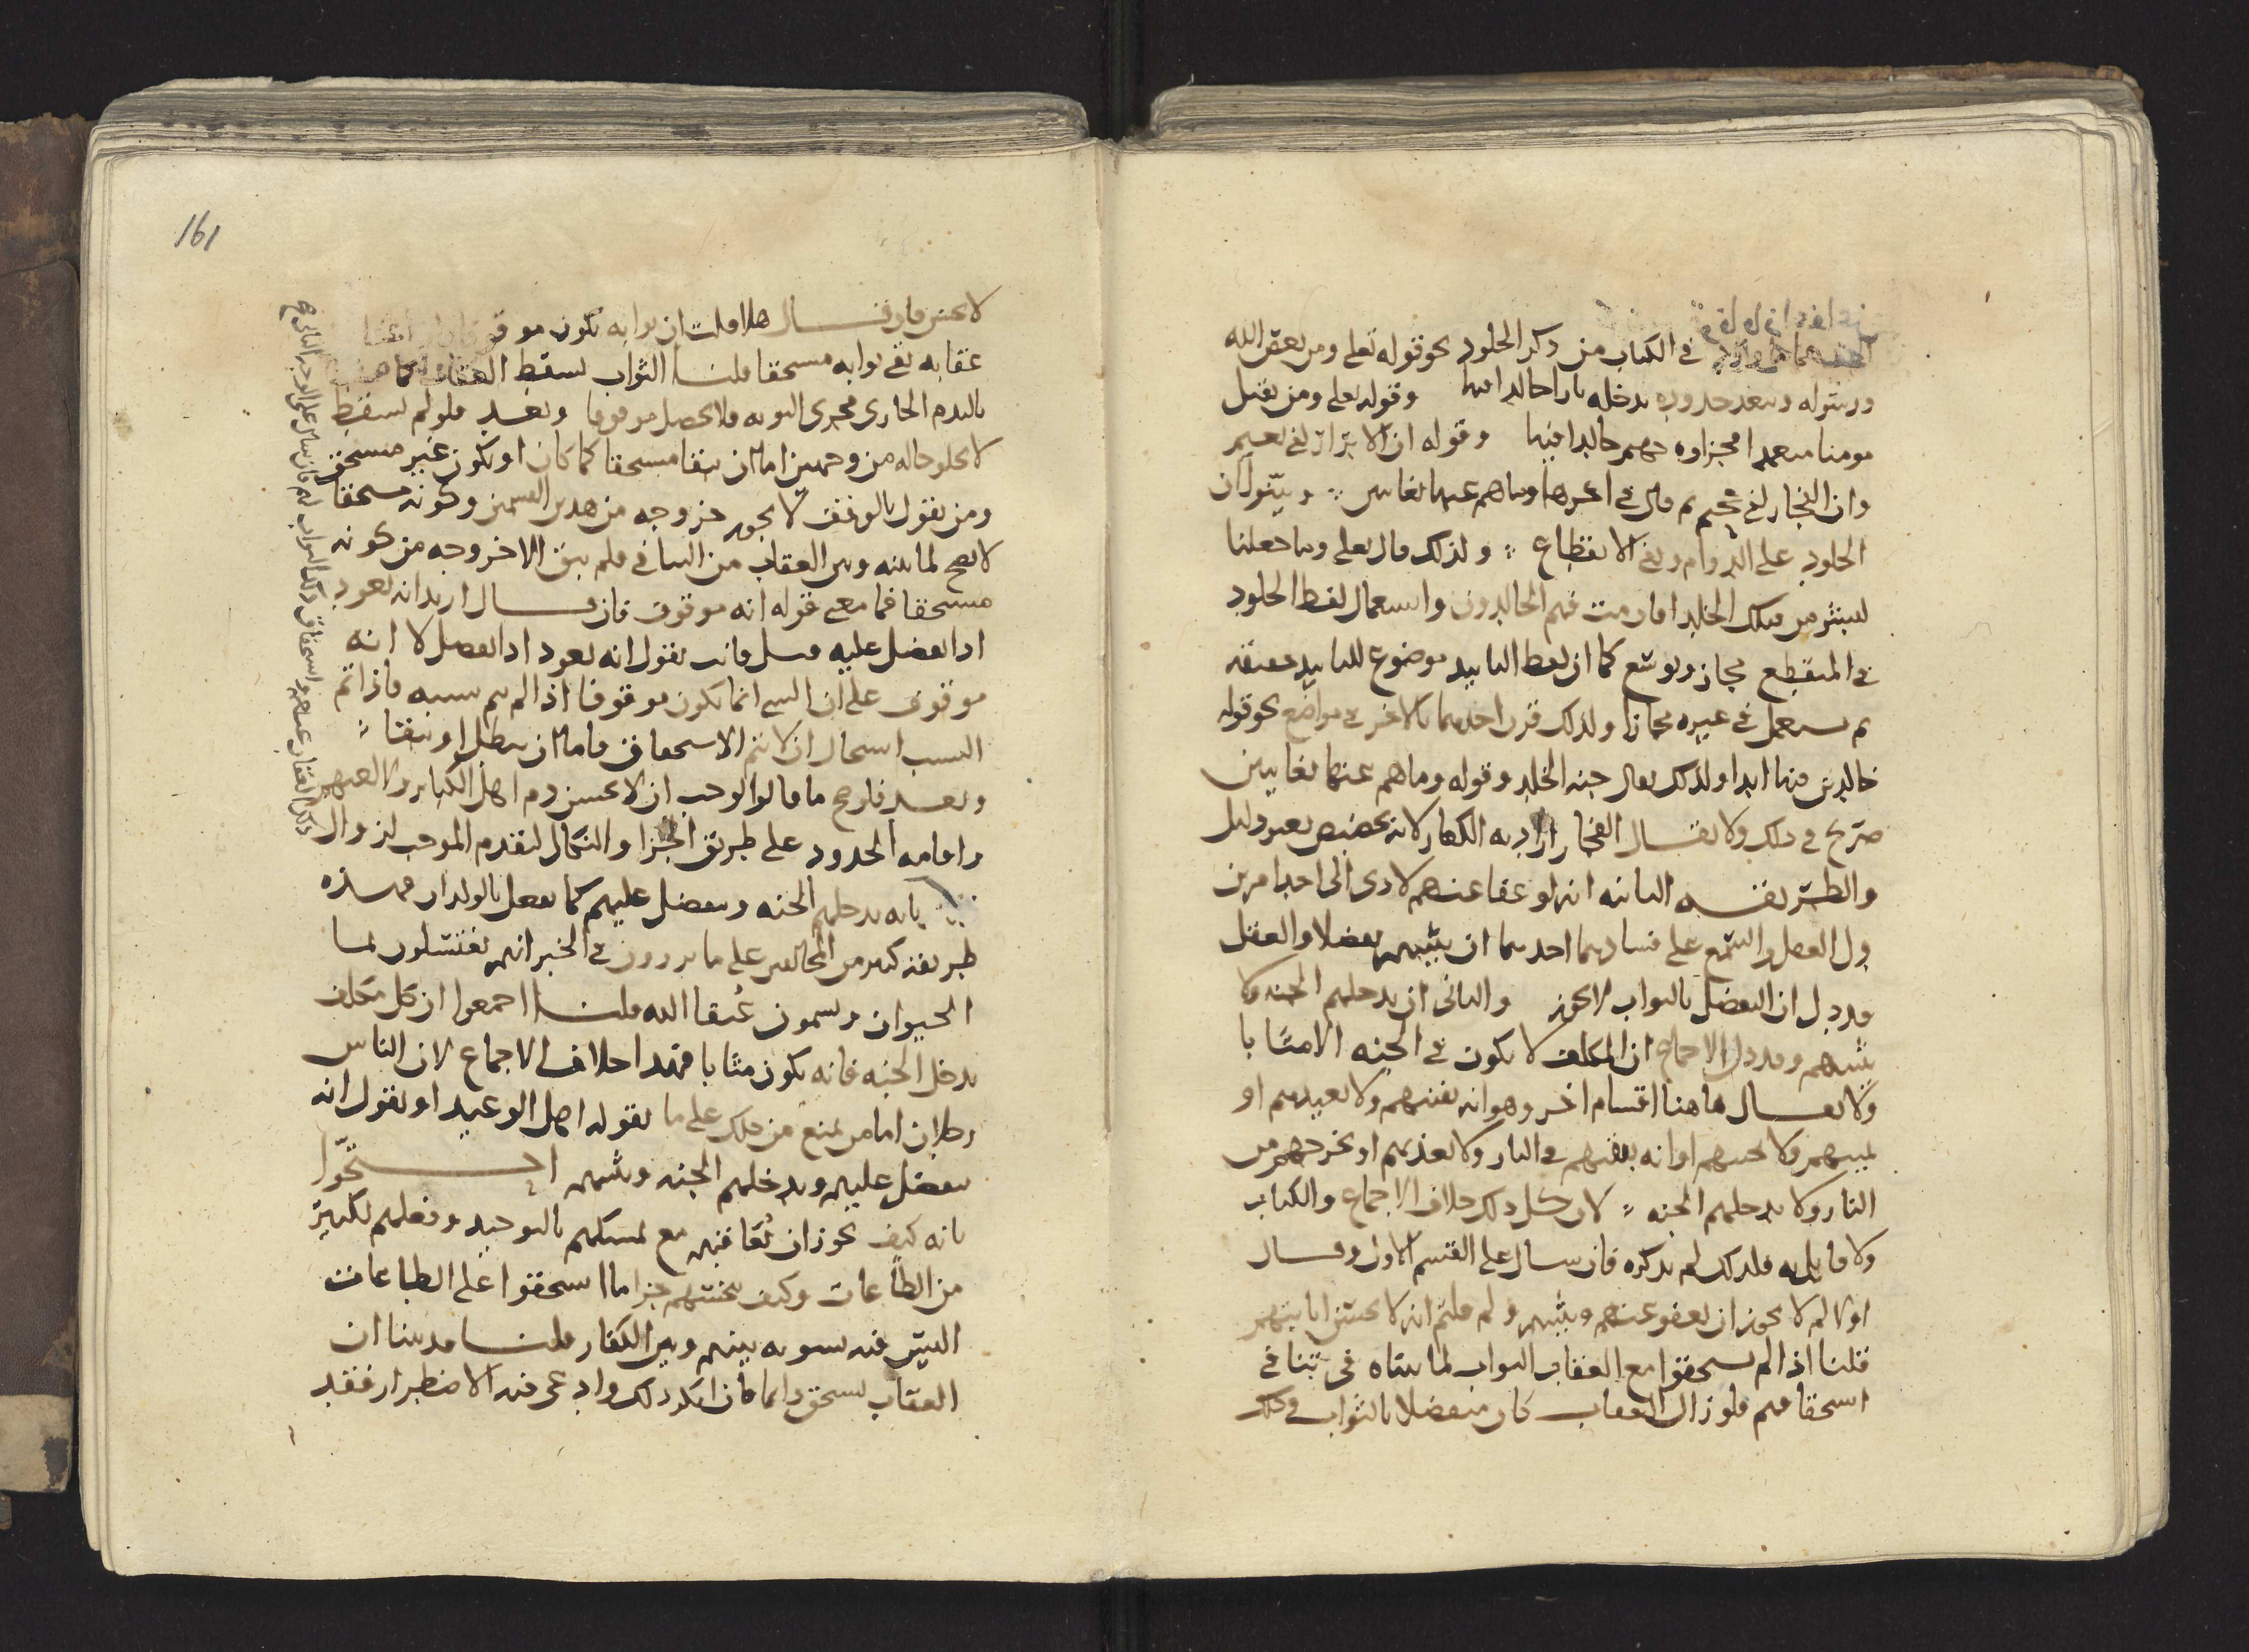 في الكتاب من ذكر الخلود نحو قوله تعلى ومن يعص الله
ورسوله ويتعد حدوده يدخله نارا خالدا فيها وقوله تعلى ومن يقتل
مومنا متعمدا فجزاوه جهنم خالدا فيها وقوله ان الابرار لفي نعيم
وان الفجار لفي جحيم ثم قال في اخرها وما هم عنها بغايبين
الخلود على الدوام ونفي الانقطاع ولذلك قال تعلى وما جعلنا
لبشر من قبلك الخلد افان مت فهم الخالدون واستعمال لفظ الخلود
في المنقطع مجاز وتوسع كما ان لفظ التابيد موضوع للتابيد حقيقة
ثم يستعمل في غيره مجازا ولذلك قرن احدهما بالاخر في مواضع نحو قوله
خالدين فيها ابدا ولذلك يقال جنه الخلد وقوله وما هم عنها بغايبين
صريح في ذلك ولا يقال الفجار اراد به الكفار لانه تخصيص بغير دليل
والطريقه الثانيه انه لو عفا عنهم لادى الى احد امرين
دل العقل والسمع على فسادهما احدهما ان يثيبهم تفضلا والعقل
قد دل ان التفضل بالثواب لا يجوز والثاني ان يدخلهم الجنه ولا
يثيبهم وقد دل الاجماع ان المكلف لا يكون في الجنه الا مثابا
ولا يقال هاهنا اقسام اخر وهو انه يفنيهم ولا يعيدهم او
يميتهم ولا يحييهم او انه يبقيهم في النار ولا يعذبهم او يخرجهم من
النار ولا يدخلهم الجنه لان كل ذلك خلاف الاجماع والكتاب
ولا قايل به فلذلك لم نذكره فان سال على القسم الاول وقال
اولا لم لا يجوز ان يعفو عنهم ويثيبهم ولم قلتم انه لا يحسن اثابتهم
قلنا اذا لم يستحقوا مع العقاب الثواب لما بيناه في تنافي
استحقاقهم فلو زال العقاب كان متفضلا بالثواب وذلك
161
لا يحسن فان قال هلا قلت ان ثوابه يكون موقوفا
عقابه بقي ثوابه مستحقا قلنا الثواب يسقط العقاب كما
بالندم الجاري مجرى التوبه فلا يحصل موقوفا وبعد فلو لم يسقط
لا يخلو حاله من وجهين اما ان يبقا مستحقا كما كان او يكون غير مستحق
ومن يقول بالوقف لا يجوز خروجه من هذين القسمين وكونه مستحقا
لا يصح لما بينه وبين العقاب من التنافي فلم يبق الا خروجه من كونه
مستحقا فما معنى قوله انه موقوف فان قال اريد انه يعود
اذا تفضل عليه قيل فانت تقول انه يعود اذا تفضل لا انه
موقوف على ان الشي انما يكون موقوفا اذا لم يتم سببه فاذا تم
السبب استحال ان لا يتم الاستحقاق فاما ان يبطل او يبقا
وبعد فلو صح ما قالوا لوجب ان لا يحسن ذم اهل الكباير ولا لعنهم
واقامه الحدود على طريق الجزا والنكال لتقدم الموجب لزوال
بانه يدخلهم الجنه ويتفضل عليهم كما يفعل بالولدان فهذه
طريقه كثير من المخالفين على ما يروون في الخبر انهم يغتسلون بما
الحيوان ويسمون عتقا الله قلنا اجمعوا ان كل مكلف
يدخل الجنه فانه يكون مثابا فهذا خلاف الاجماع لان الناس
رجلان اما من يمنع من ذلك على ما يقوله اهل الوعيد او يقول انه
يتفضل عليهم ويدخلهم الجنه ويثيبهم احتجوا
بانه كيف يجوز ان يعاقبهم مع تمسكهم بالتوحيد وفعلهم لكثير
من الطاعات وكيف يبخسهم جزا ما استحقوا على الطاعات
اليس فيه تسويه بينهم وبين الكفار قلنا قد بينا ان
العقاب يستحق دايما فان انكر ذلك وادعى فيه الاضطرار فقد